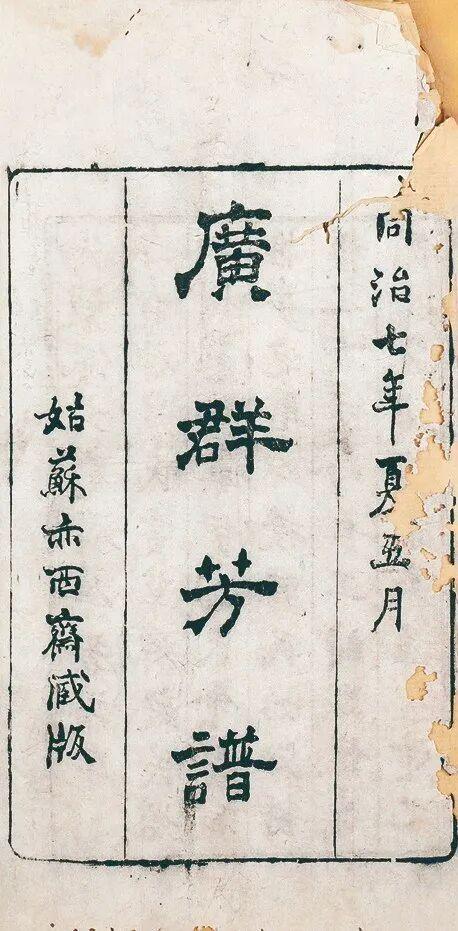 同治七年夏五月
廣群芳譜
姑蘇亦西齋藏版